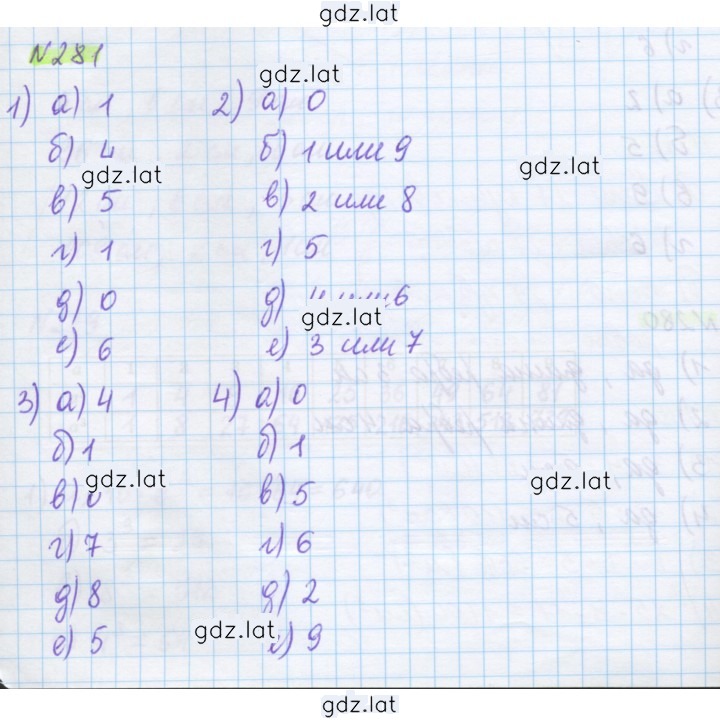 gdz.lat
№281
gdz.lat
1) а) 1
б) 4
gdz.lat
в) 5
г) 1
д) 0
е) 6
2) а) 0
б) 1 или 9
gdz.lat
в) 2 или 8
г) 5
д) 4 или 6
gdz.lat
е) 3 или 7
3) а) 4
б) 1
gdz.lat
в) 0
г) 7
д) 8
е) 5
4) а) 0
б) 1
gdz.lat
в) 5
г) 6
д) 2
gdz.lat
е) 9
gdz.lat